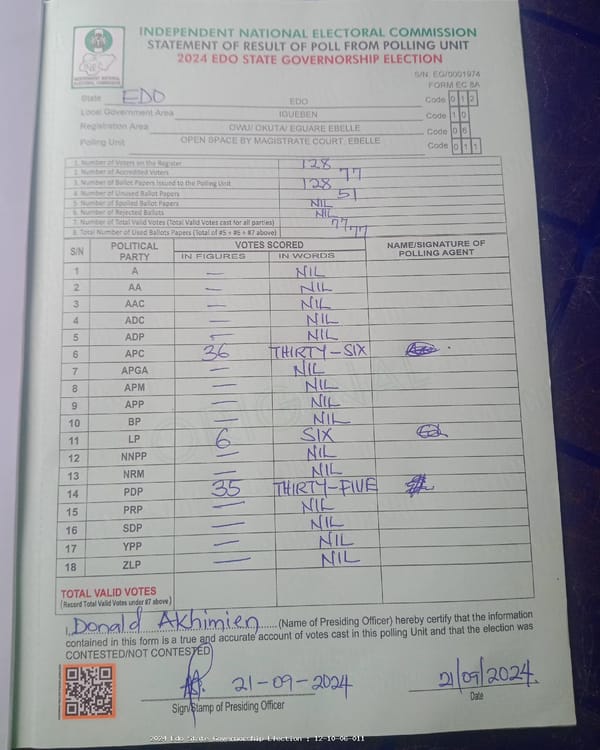 INDEPENDENT NATIONAL ELECTORAL COMMISSION
STATEMENT OF RESULT OF POLL FROM POLLING UNIT
2024 EDO STATE GOVERNORSHIP ELECTION
S/N: EG/0001974
FORM EC 8A
State EDO EDO Code 0 1 2
Local Government Area IGUEBEN Code 1 0
Registration Area OWU/ OKUTA/ EGUARE EBELLE Code 0 6
Polling Unit OPEN SPACE BY MAGISTRATE COURT, EBELLE Code 0 1 1
1. Number of Voters on the Register 128
2. Number of Accredited Voters 77
3. Number of Ballot Papers Issued to the Polling Unit 128
4. Number of Unused Ballot Papers 51
5. Number of Spoiled Ballot Papers NIL
6. Number of Rejected Ballots NIL
7. Number of Total Valid Votes (Total Valid Votes cast for all parties) 77
8. Total Number of Used Ballots Papers (Total of #5 + #6 + #7 above) 77
S/N POLITICAL PARTY VOTES SCORED NAME/SIGNATURE OF POLLING AGENT
IN FIGURES IN WORDS
1 A — NIL
2 AA — NIL
3 AAC — NIL
4 ADC — NIL
5 ADP — NIL
6 APC 36 THIRTY-SIX
7 APGA — NIL
8 APM — NIL
9 APP — NIL
10 BP — NIL
11 LP 6 SIX
12 NNPP — NIL
13 NRM — NIL
14 PDP 35 THIRTY-FIVE
15 PRP — NIL
16 SDP — NIL
17 YPP — NIL
18 ZLP — NIL
TOTAL VALID VOTES
(Record Total Valid Votes under #7 above)
I, Donald Akhimien (Name of Presiding Officer) hereby certify that the information
contained in this form is a true and accurate account of votes cast in this polling Unit and that the election was
CONTESTED/NOT CONTESTED
21-09-2024 21/09/2024
Sign/Stamp of Presiding Officer Date
2024 Edo State Governorship Election : 12-10-06-011